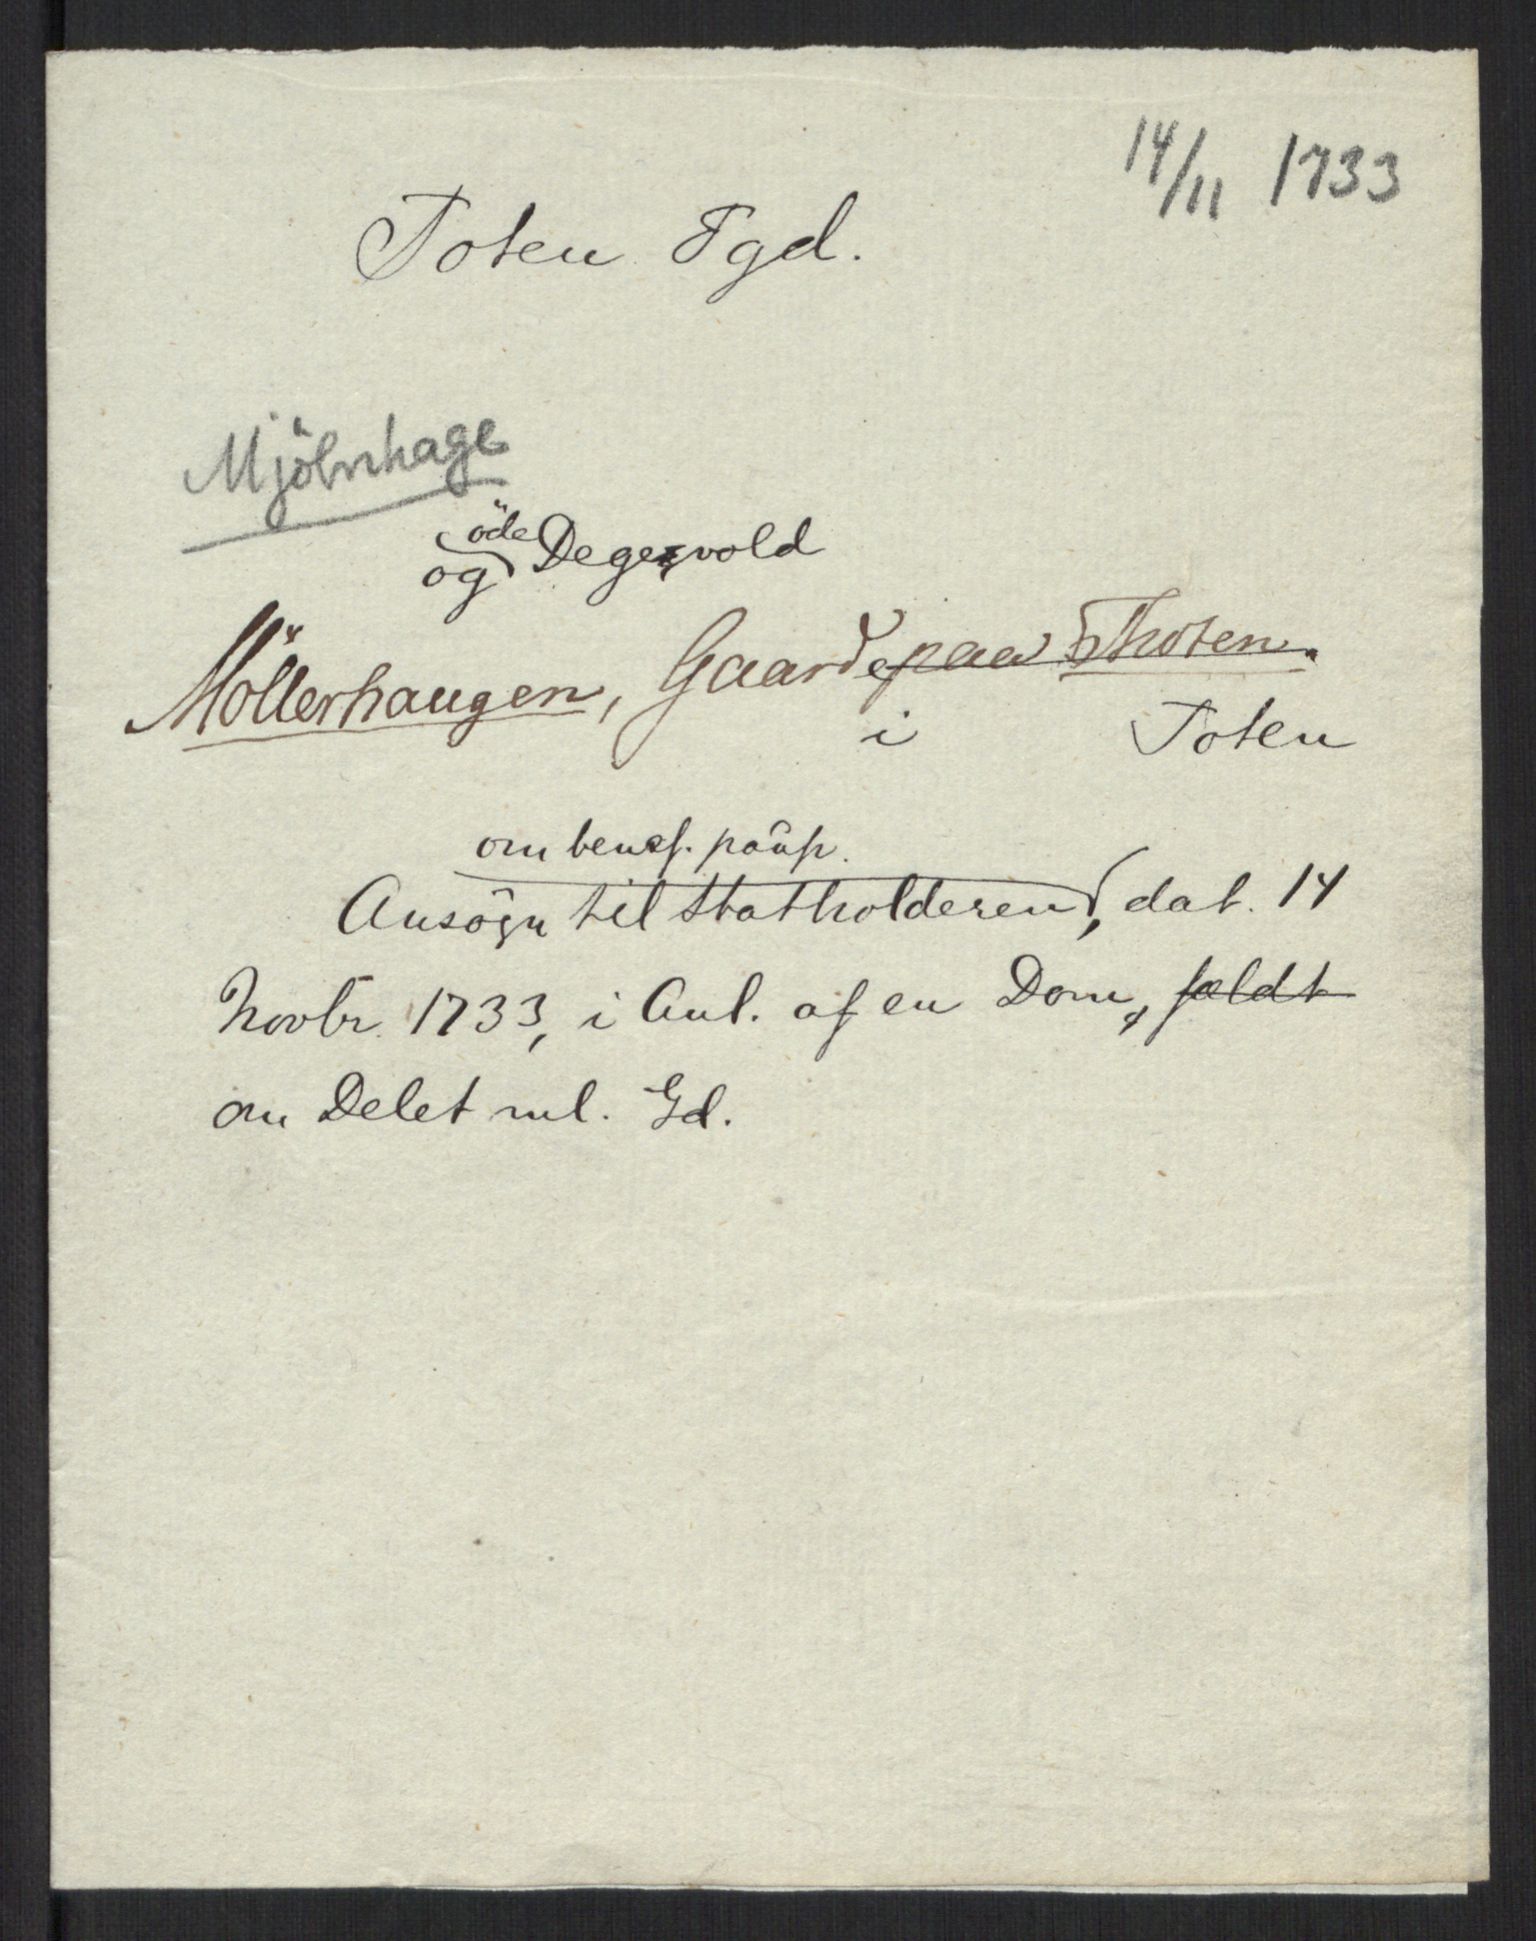 14/11 1733
Toten Fgd.
Mjölnhage
öde
og Degervold
Möllerhaugen, Gaarde paa Thoten.
i Toten
om benef. paup.
Ansögn til Statholderen, dat. 14
Novbr. 1733, i Anl. af en Dom, fældt
om Delet ml. Gd.